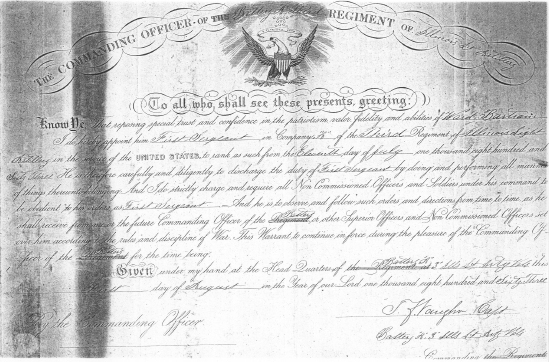 THE COMMANDING OFFICER OF THE REGIMENT OF Illinois Lt Artillery
To all who shall see these presents, greeting:
Know Ye, That reposing special trust and confidence in the patriotism valor fidelity and abilities of
I do hereby appoint him First Sergeant in Company K of the Third Regiment of Illinois Light
Artillery in the service of the UNITED STATES, to rank as such from the day of July one thousand eight hundred and
Sixty Three He is therefore carefully and diligently to discharge the duty of First Sergeant by doing and performing all manner
of things thereunto belonging. And I do strictly charge and require all Non Commissioned Officers and Soldiers under his command to
be obedient to his orders as First Sergeant And he is to observe and follow such orders and directions from time to time, as he
shall receive from me or the future Commanding Officer of the Battery or other Superior Officers and Non Commissioned Officers set
over him, according to the rules and discipline of War. This Warrant to continue in force during the pleasure of the Commanding Of-
ficer of the for the time being.
Given under my hand at the Head Quarters of the this
day of August in the Year of our Lord one thousand eight hundred and Sixty Three
By the Commanding Officer
Capt
Battery K. 3 Ills Lt Arty
Commanding the